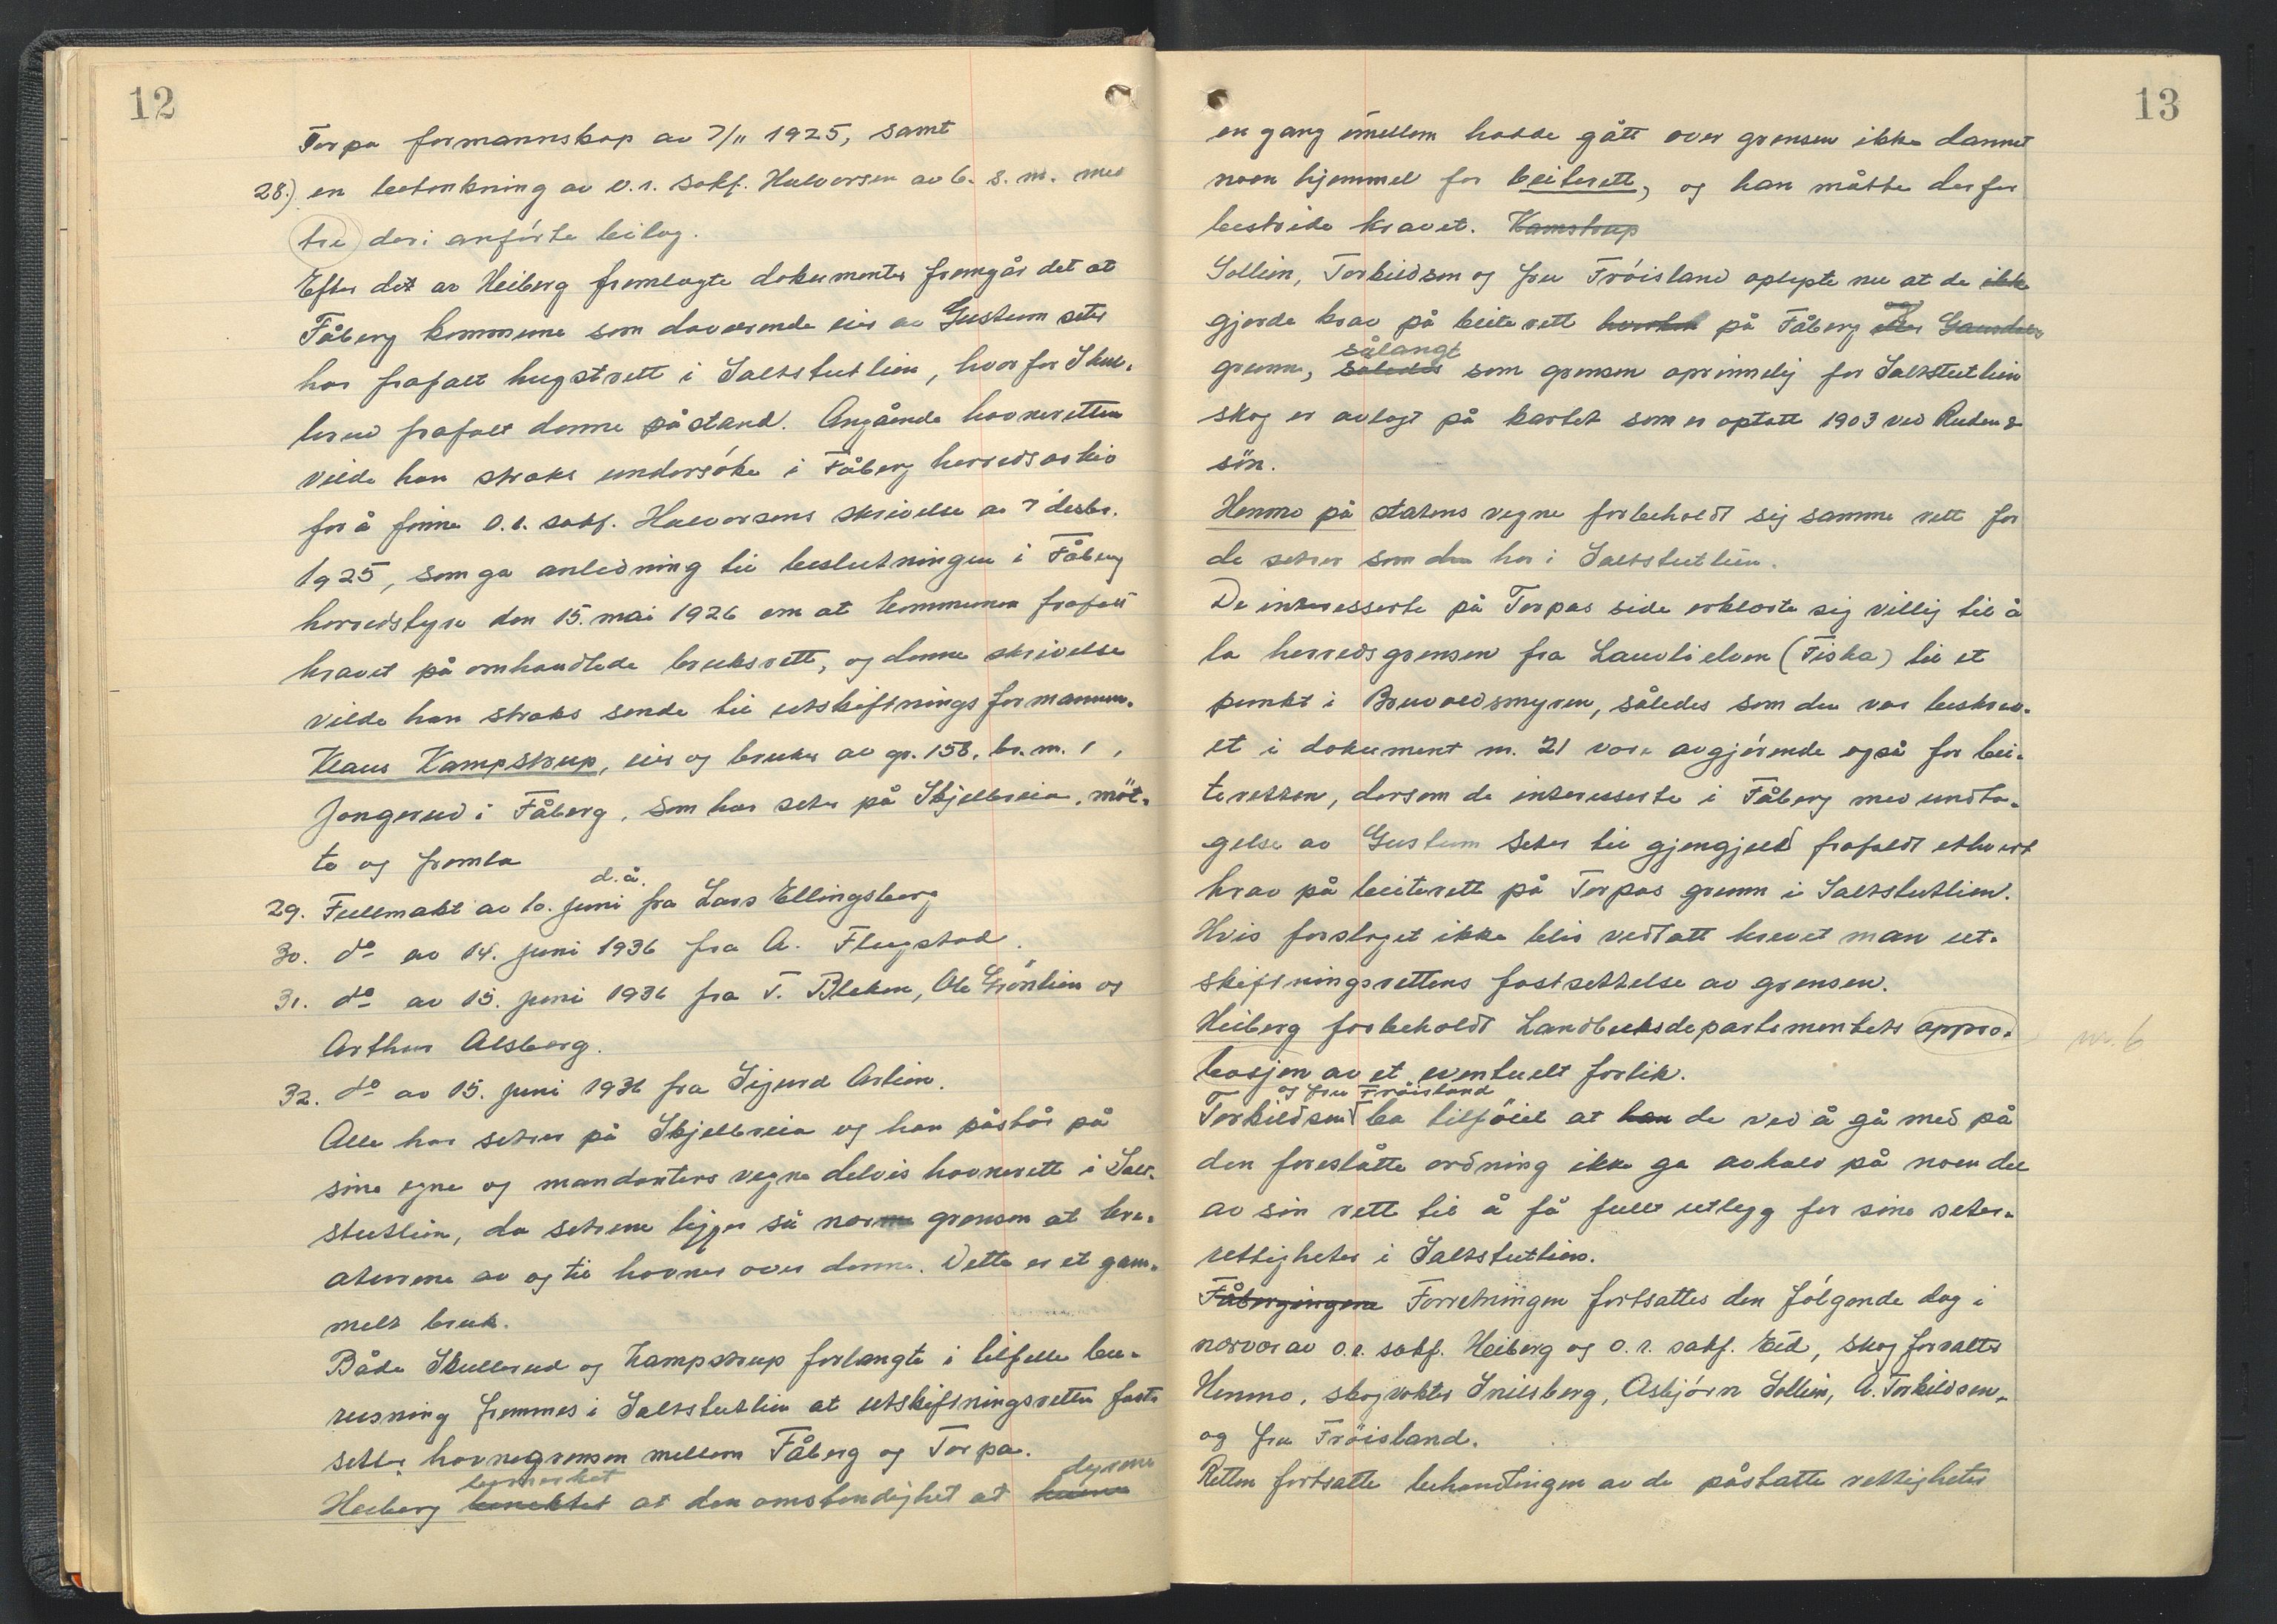 12
Torpa formannskap av 7/11 1925, samt
28.) en betenkning av o.r. sakf. Halvorsen av 6. s. m. med
tre deri anförte bilag.
Efter det av Heiberg fremlagte dokumenter fremgår det at
Fåberg kommune som daværende eier av Gustum seter
har frafalt hugstrett i Saltstutlien, hvorfor Skul-
lerud frafalt denne påstand. Angående havneretten
vilde han straks undersöke i Fåberg herredsarkiv
for å finne o.r. sakf. Halvorsens skrivelse av 7 desbr.
1925, som ga anledning til beslutningen i Fåberg
herredstyre den 15. mai 1926 om at kommunen frafalt
kravet på omhandlede bruksrett, og denne skrivelse
vilde han straks sende til utskiftningsformannen.
Klaus Kampstrup, eier og bruker av gr. 158, br. nr. 1,
Jongerud i Fåberg, som har seter på Skjellbreia, möt-
te og fremla
d.å.
29. Fullmakt av 10. juni fra Lars Ellingsberg
30. do av 14. juni 1936 fra A. Flugstad.
31. do av 15. juni 1936 fra T. Bleken, Ole Grönlien og
Arthur Alsberg.
32. do av 15. juni 1936 fra Sigurd Aslien.
Alle har setrer på Skjellbreia og han påstår på
sine egne og mandanters vegne delvis havnerett i Salt-
stutlien, da setrene ligger så nær grensen at krea-
turene av og til havner over denne. Dette er et gam-
melt bruk.
Både Skullerud og Kampstrup forlangte i tilfelle beu-
rusning fremmes i Saltstutlien at utskiftningsretten fast-
setter havnegrensen mellem Fåberg og Torpa.
bemerket dyrene
Heiberg at den omstendighet at
13
en gang imellem hadde gått over grensen ikke dannet
noen hjemmel for beiterett, og han måtte derfor
bestride kravet. Kamstrup
Sollien, Torkildsen og fru Fröisland oplyste nu at de ikke
gjorde krav på beiterett på Fåberg og Gausdals
sålangt
grunn, således som grensen oprinnelig for Saltstutlien
skog er avlagt på kartet som er optatt 1903 ved Ruden &
sön.
Henmo på statens vegne forbeholdt sig samme rett for
de setrer som den har i Saltstutlien.
De interesserte på Torpas side erklærte sig villig til å
la herredsgrensen fra Lauvlielven (Fiska) til et
punkt i Bruvoldsmyren, således som den var beskrev-
et i dokument nr. 21 være avgjörende også for bei-
teretten, dersom de interesserte i Fåberg med undta-
gelse av Gustum seter til gjengjeld frafaldt ethvert
krav på beiterett på Torpas grunn i Saltstutlien.
Hvis forslaget ikke blir vedtatt krevet man ut-
skiftningsrettens fastsettelse av grensen.
Heiberg forbeholdt Landbruksdepartementets appro-
nr. 6
basjon av et eventuelt forlik.
og fru Fröisland
Torkildsen ba tilföiet at han de ved å gå med på
den foreslåtte ordning ikke ga avkald på noen del
av sin rett til å få fullt utlegg for sine seter-
rettigheter i Saltstutlien.
Fåbergingene Forretningen fortsattes den fölgende dag i
nærvær av o.r. sakf. Heiberg og o.r. sakf. Eid, skogforvalter
Henmo, skogvokter Snilsberg, Asbjörn Sollien, A. Torkildsen
og fru Fröisland.
Retten fortsatte behandlingen av de påståtte rettigheter